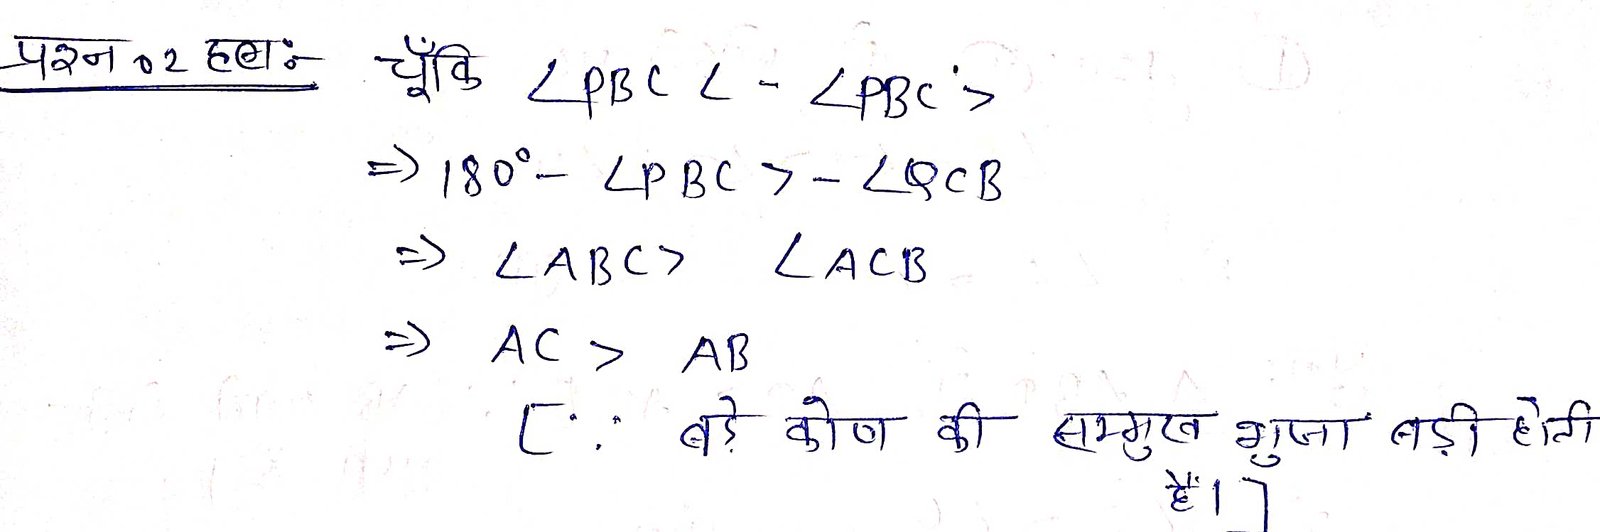 प्रश्न 02 हल:- चूँकि ∠PBC < - ∠PBC >
⇒ 180° - ∠PBC > - ∠QCB
⇒ ∠ABC > ∠ACB
⇒ AC > AB
[∵ बड़े कोण की सम्मुख भुजा बड़ी होती
हैं।]